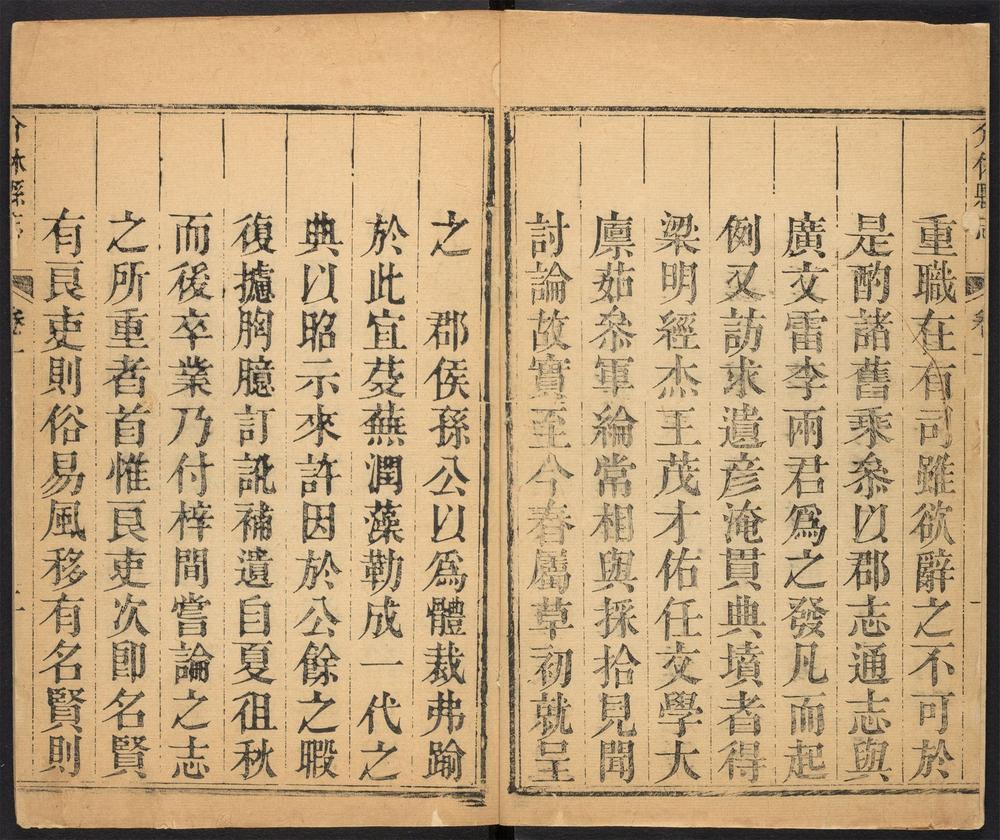 介休縣志
卷一
一
重職在有司雖欲辭之不可於
是酌諸舊乘叅以郡志通志與
廣文雷李兩君爲之發凡而起
例又訪求遺彦淹貫典墳者得
梁明經杰王茂才佑任文學大
廪茹叅軍綸常相與採拾見聞
討論故實至今春屬草初就呈
之　郡侯孫公以爲體裁弗踰
於此宜芟蕪潤藻勒成一代之
典以昭示來許因於公餘之暇
復攄胸臆訂訛補遺自夏徂秋
而後卒業乃付梓間嘗論之志
之所重者首惟良吏次即名賢
有良吏則俗易風移有名賢則
介休縣志
卷一